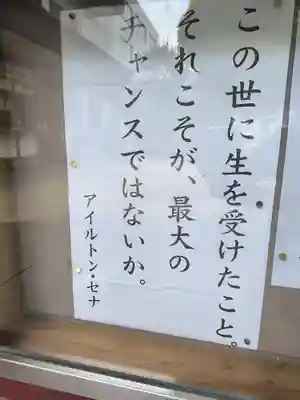 この世に生を受けたこと。
それこそが、最大の
チャンスではないか。
アイルトン・セナ